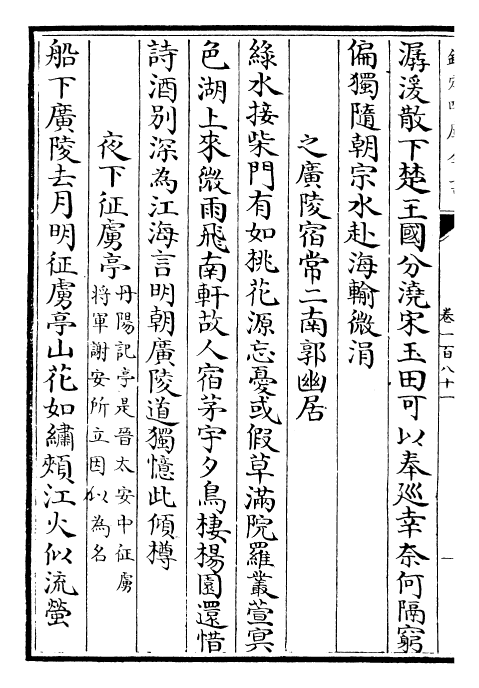 潺湲散下楚王國分澆宋玉田可以奉廵幸奈何隔窮
偏獨隨朝宗水赴海輸微涓
之廣陵宿常二南郭幽居
綠水接柴門有如桃花源忘憂或假草滿院羅叢萱㝠
色湖上來微雨飛南軒故人宿茅宇夕鳥棲楊園還惜
詩酒别深為江海言明朝廣陵道獨憶此傾樽
夜下征虜亭丹陽記亭是晉太安中征虜
將軍謝安所立因以為名
船下廣陵去月明征虜亭山花如繡頰江火似流螢
卷一百八十一